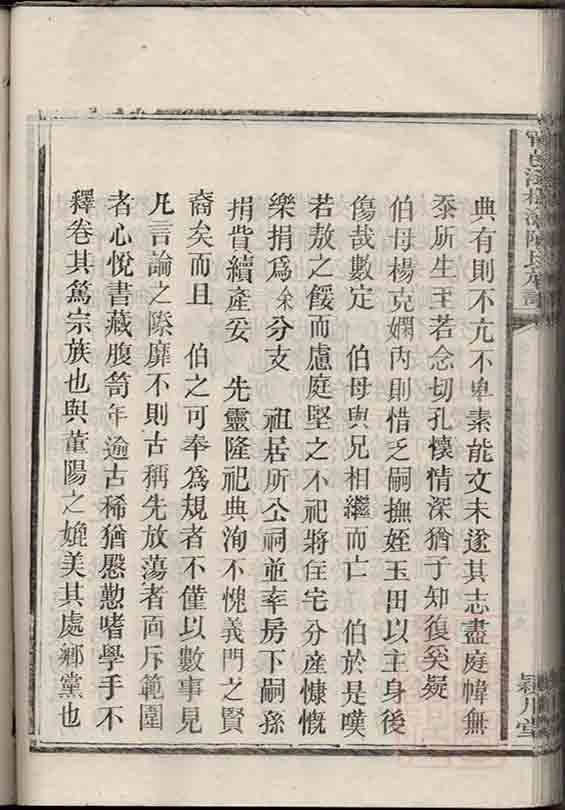 陳氏
潁川堂
典有則不亢不卑素能文未遂其志盡庭幃無
忝所生至若念切孔懷情深猶子知復奚疑
伯母楊克嫻內則惜乏嗣撫姪玉田以主身後
傷哉數定　伯母與兄相繼而亡　伯於是嘆
若敖之餒而慮庭堅之不祀將住宅分產慷慨
樂捐為余分支　祖居所公祠並率房下嗣孫
捐貲續產妥　先靈隆祀典洵不愧義門之賢
裔矣而且　伯之可奉為規者不僅以數事見
凡言論之際靡不則古稱先放蕩者面斥範圍
者心悅書藏腹笥年逾古稀猶慇懃嗜學手不
釋卷其篤宗族也與董陽之媲美其處鄉黨也